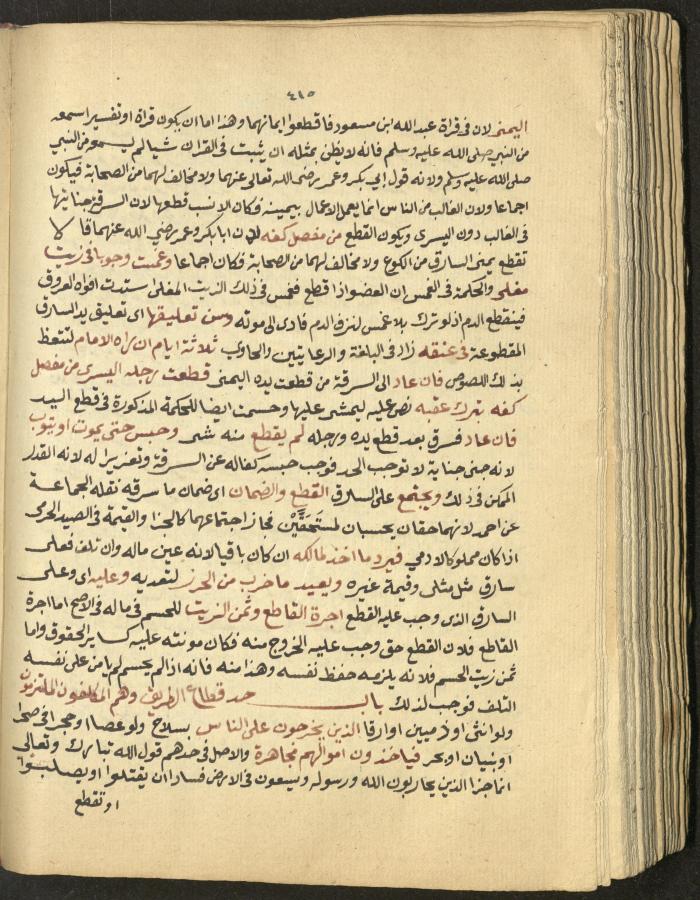 ٤١٥
اليمنى لان فى قراة عبد الله ابن مسعود فاقطعوا ايمانهما وهذا اما ان يكون قراة او تفسيرا سمعه
من النبي صلى الله عليه وسلم فانه لا يظن بمثله ان يثبت فى القران شيا لم يسمعه من النبي
صلى الله عليه وسلم ولانه قول ابي بكر وعمر رضي الله تعالى عنهما ولا مخالف لهما من الصحابة فيكون
اجماعا ولان الغالب من الناس انما يعمل الاعمال بيمينه فكان الانسب قطعها لان السرقة جنايتها
فى الغالب دون اليسرى ويكون القطع من مفصل كفه لان ابا بكر وعمر رضي الله عنهما قالا
تقطع يمنى السارق من الكوع ولا مخالف لهما من الصحابة فكان اجماعا وغمست وجوبا فى زيت
مغلى والحكمة فى الغمس ان العضو اذا قطع فغمس فى ذلك الزيت المغلى استدت افواه العروق
فينقطع الدم اذ لو ترك بلا غمس لنزف الدم فادى الى موته وسن تعليقها اى تعليق يد السارق
المقطوعة فى عنقه زاد فى البلغة والرعايتين والحاوي ثلاثة ايام ان راه الامام لتتعظ
بذلك اللصوص فان عاد الى السرقة من قطعت يده اليمنى قطعت رجله اليسرى من مفصل
كعبه بترك عقبه نص عليه ليمشى عليها وحسمت ايضا للحكمة المذكورة فى قطع اليد
فان عاد فسرق بعد قطع يده ورجله لم يقطع منه شى وحبس حتى يموت او يتوب
لانه جنى جناية لا توجب الحد فوجب حبسه كفا له عن السرقة وتعزيرا له لانه القدر
الممكن فى ذلك ويجتمع على السارق القطع والضمان اى ضمان ما سرقه نقله الجماعة
عن احمد لانهما حقان يجبان لمستحقين فجاز اجتماعهما كالجزا والقيمة فى الصيد الحرمى
اذا كان مملوكا لادمي فيرد ما اخذ لمالكه ان كان باقيا لانه عين ماله وان تلف فعلى
سارق مثل مثلى وقيمة غيره ويعيد ما خرب من الحرز لتعديه وعليه اى وعلى
السارق الذى وجب عليه القطع اجرة القاطع وثمن الزيت للحسم فى ماله فى الاصح اما اجرة
القاطع فلان القطع حق وجب عليه الخروج منه فكان مونته عليه كساير الحقوق واما
ثمن زيت الحسم فلانه يلزمه حفظ نفسه وهذا منه فانه اذا لم يحسم لم يامن على نفسه
التلف فوجب لذلك باب حد قطاع الطريق وهم المكلفون الملتزمون
ولو انثى او ذميين او ارقا الذين يخرجون على الناس بسلاح ولو عصا او حجرا فى صحرا
او بنيان او بحر فياخذون اموالهم مجاهرة والاصل فى حدهم قول الله تبارك وتعالى
انما جزا الذين يحاربون الله ورسوله ويسعون فى الارض فسادا ان يقتلوا او يصلبوا
او تقطع